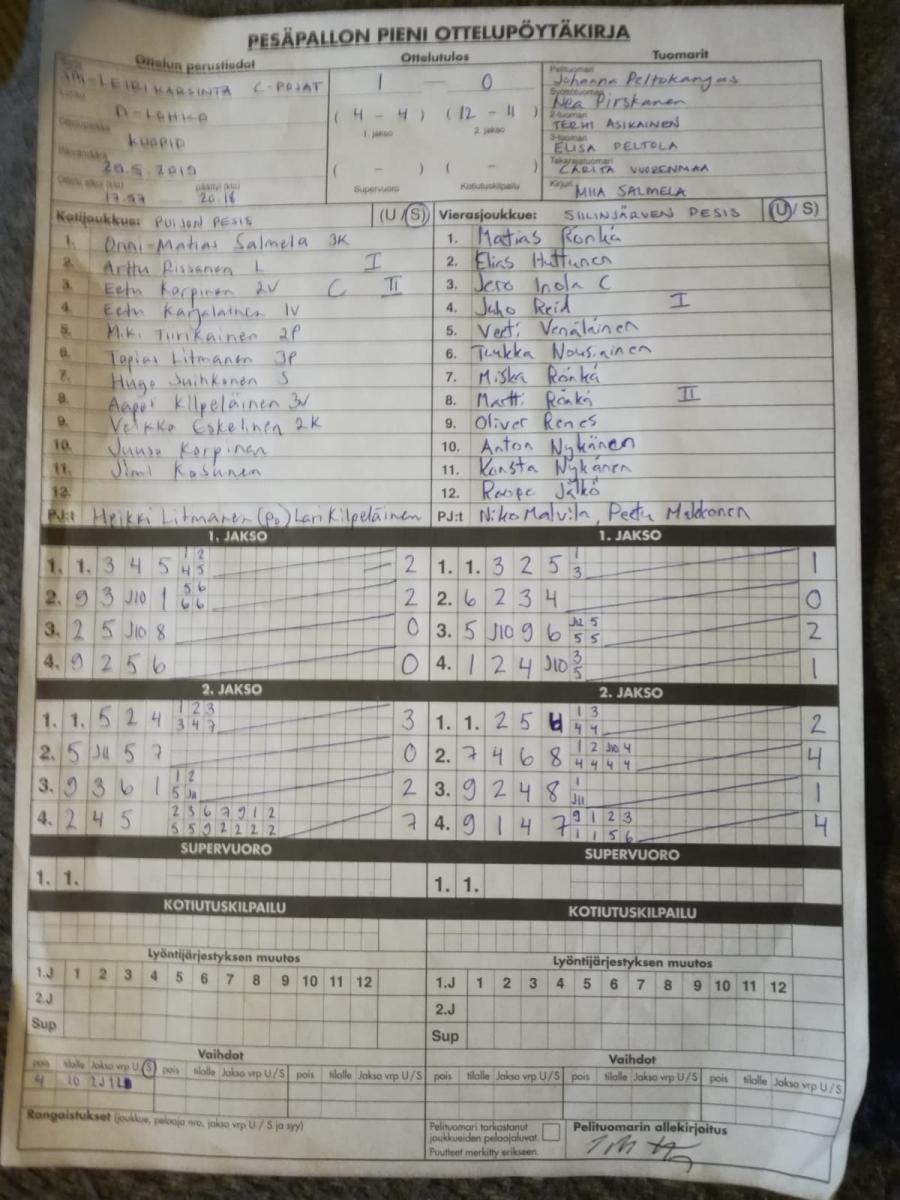 PESÄPALLON PIENI OTTELUPÖYTÄKIRJA
Ottelun perustiedot Ottelutulos Tuomarit
LEIRIKARSINTA C-POJAT
KUOPIO
20.5.2019
20.18
1 — 0
( 4 – 4 ) ( 12 – 11 )
1. jakso 2. jakso
( – ) ( – )
Supervuoro Kotiutuskilpailu
Pelituomari
Johanna Peltokangas
Syöttötuomari
Nea Pirskanen
2-tuomari
TERHI ASIKAINEN
3-tuomari
ELISA PELTOLA
Takarajatuomari
CARITA VUORENMAA
Kirjuri
MIIA SALMELA
Kotijoukkue: PUIJON PESIS (U/S)
1. Onni-Matias Salmela 3K
2. Arttu Rissanen L I
3. Eetu Korpinen 2V C II
4. Eetu Karjalainen 1V
5. Miki Tiirikainen 2P
6. Topias Litmanen 3P
7. Hugo Juihkonen S
8. Aapo Kilpeläinen 3V
9. Veikko Eskelinen 2K
10. Juuso Korpinen
11. Jimi Kosunen
12.
PJ:t Heikki Litmanen (po) Lari Kilpeläinen
Vierasjoukkue: SIILINJÄRVEN PESIS (U/S)
1. Matias Rönkä
2. Elias Huttunen
3. Jero Inola C
4. Juho Reid I
5. Veeti Venäläinen
6. Tuukka Nousiainen
7. Miska Rönkä
8. Martti Rönkä II
9. Oliver Renes
10. Anton Nykänen
11. Konsta Nykänen
12. Roope Jälkö
PJ:t Niko Malvila, Peetu Makkonen
1. JAKSO
1. 1. 3 4 5 1 2 2
4 5
2. 9 3 J10 1 5 6 2
6 6
3. 2 5 J10 8 0
4. 9 2 5 6 0
1. JAKSO
1. 1. 3 2 5 1 1
3
2. 6 2 3 4 0
3. 5 J10 9 6 J12 5 2
5 5
4. 1 2 4 J10 3 1
5
2. JAKSO
1. 1. 5 2 4 1 2 3 3
3 4 7
2. 5 J11 5 7 0
3. 9 3 6 1 1 2 2
5 J11
4. 2 4 5 2 3 6 7 9 1 2 7
5 5 9 2 2 2 2
2. JAKSO
1. 1. 2 5 6 1 3 2
4 4
2. 7 4 6 8 1 2 J10 4 4
4 4 4 4
3. 9 2 4 8 1 1
J11
4. 9 1 4 7 9 1 2 3 4
1 1 5 6
SUPERVUORO
1. 1.
SUPERVUORO
1. 1.
KOTIUTUSKILPAILU
KOTIUTUSKILPAILU
Lyöntijärjestyksen muutos
1.J 1 2 3 4 5 6 7 8 9 10 11 12
2.J
Sup
Lyöntijärjestyksen muutos
1.J 1 2 3 4 5 6 7 8 9 10 11 12
2.J
Sup
Vaihdot
pois tilalle Jakso vrp U/S pois tilalle Jakso vrp U/S pois tilalle Jakso vrp U/S
4 10
Vaihdot
pois tilalle Jakso vrp U/S pois tilalle Jakso vrp U/S pois tilalle Jakso vrp U/S
Rangaistukset (joukkue, pelaaja nro, jakso vrp U / S ja syy)
Pelituomari tarkastanut
joukkueiden pelaajaluvat.
Puutteet merkitty erikseen.
Pelituomarin allekirjoitus